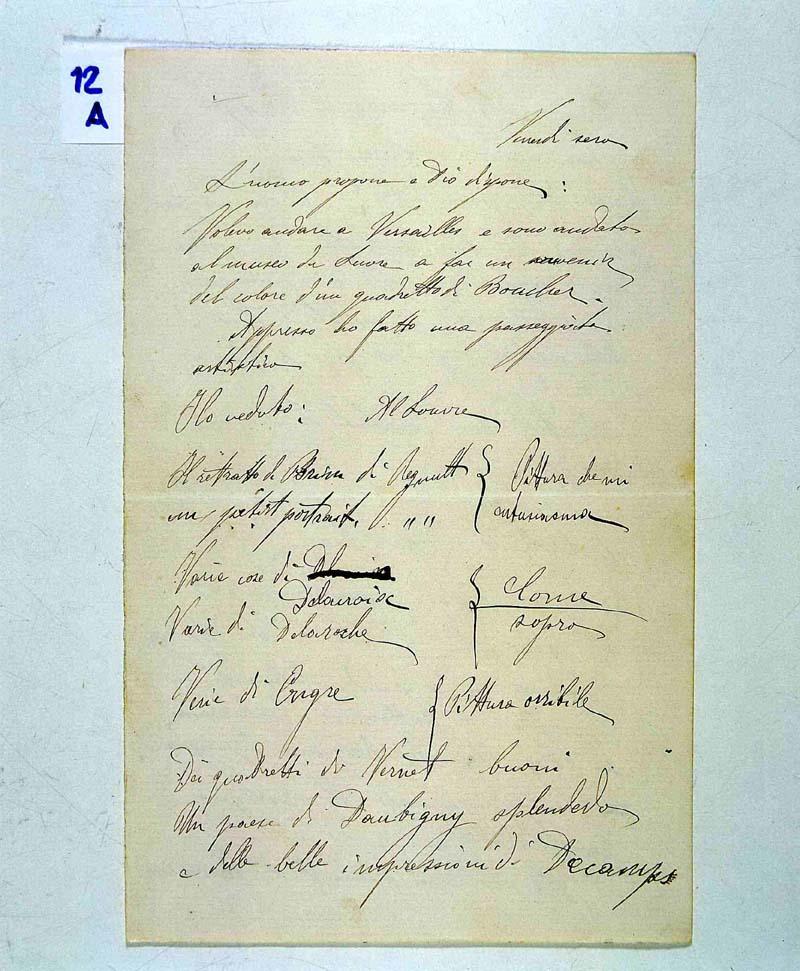 12
A
Venerdi sera
L'uomo propone e Dio dispone:
Volevo andare a Versailles e sono andato
al museo du Luvre a far un souvenir
del colore d'un quadretto di Boucher.
Appresso ho fatto una passeggiata
artistica
Ho veduto: Al Louvre
Il ritratto di Prim di Regnault } Pittura che mi
un petit portrait, " " entusiasma
Varie cose di
Delacroix } Come
Varie di Delaroche sopra
Verie di Engre { Pittura orribile
Dei quadretti di Vernet buoni
Un paese di Daubigny splendido
e delle belle impressioni di Decamps